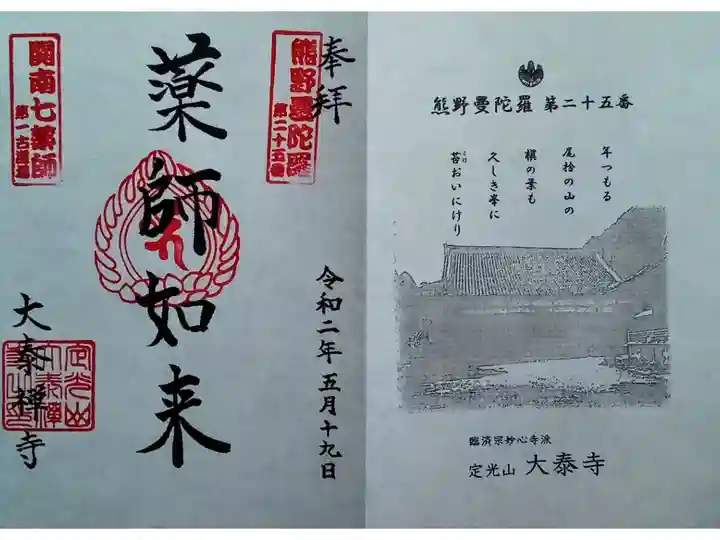 熊野曼陀羅 第二十五番
年つもる
尾捨の山の
槙の葉も
久しき峯に
苔おいにけり
こけ
臨済宗妙心寺派
定光山 大泰寺
奉拝
熊野曼陀羅
第二十五番
薬師如来
令和二年五月十九日
関南七薬師
大泰禅寺